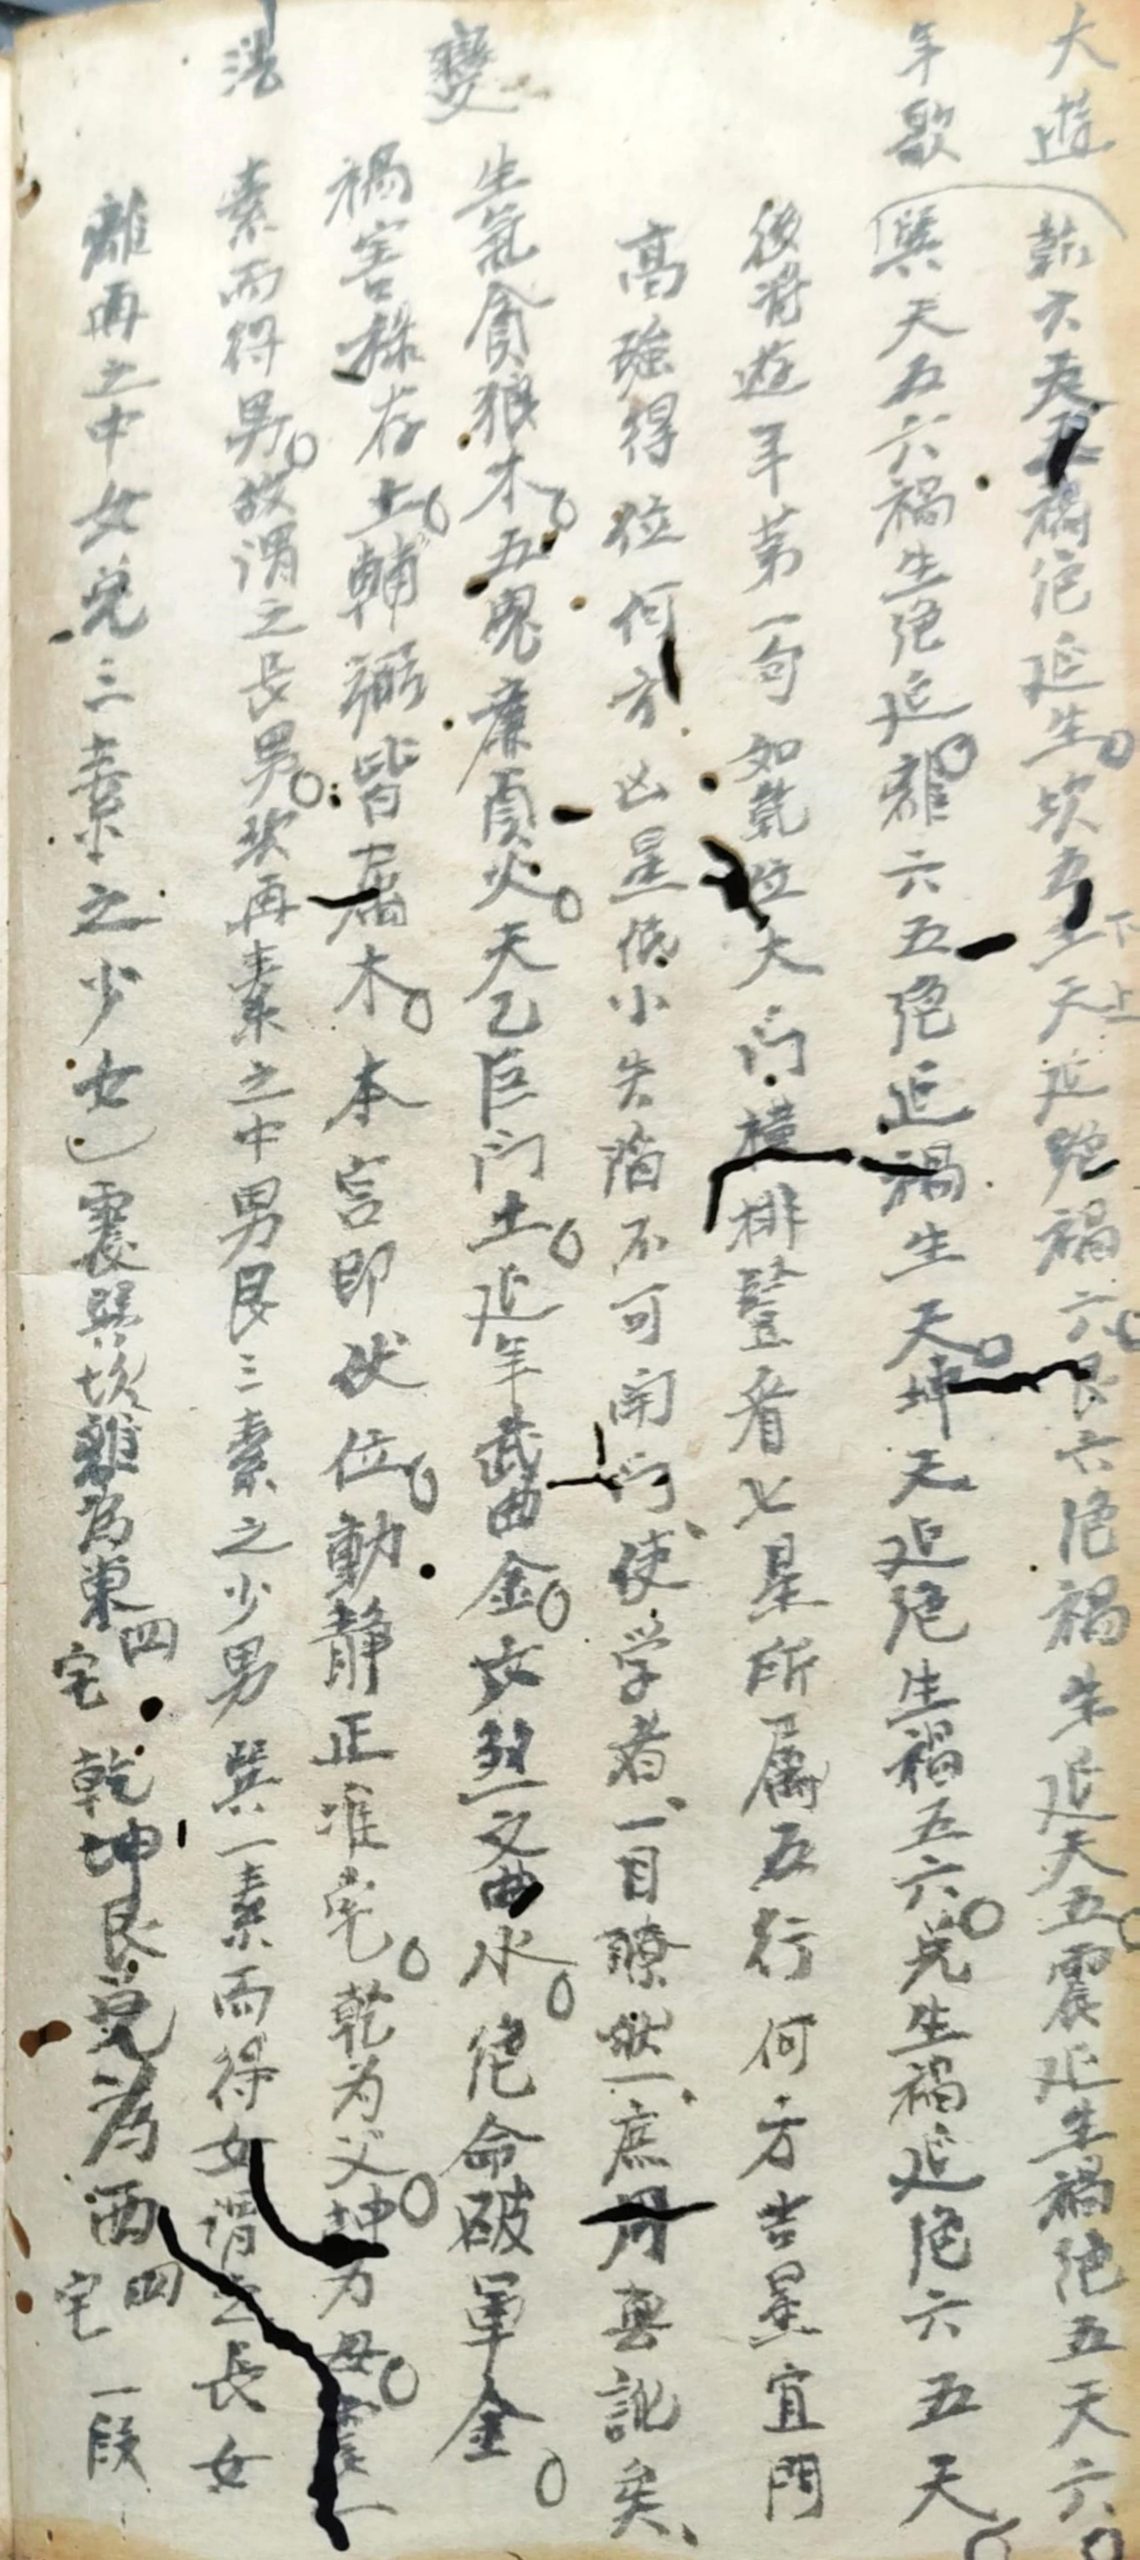 大遊 乾六天五禍絕延生坎五生天延絕禍六艮六絕禍生延天五震延生禍絕五天六
年歌 巽天五六禍生絕延離六五絕延禍生天坤天延絕生禍五六兌生禍延絕六五天
後將遊年第一句如乾位大门樓排豎看七星所属五行何方吉星宜門
高強得位何方凶星低小失陷不可開门使学者一目瞭然庶毋舛訛矣
變 生氣貪狼木五鬼廉貞火天乙巨门土延年武曲金文煞文曲水絕命破軍金
禍害祿存土輔弼皆属木本宫即伏位動静正准宅乾为父坤为母震一
法 素而得男故谓之長男坎再素之中男艮三素之少男巽一素而得女謂之長女
離再之中女兌三素之少女震巽坎離為東四宅乾坤艮兌為西四宅一段
下上